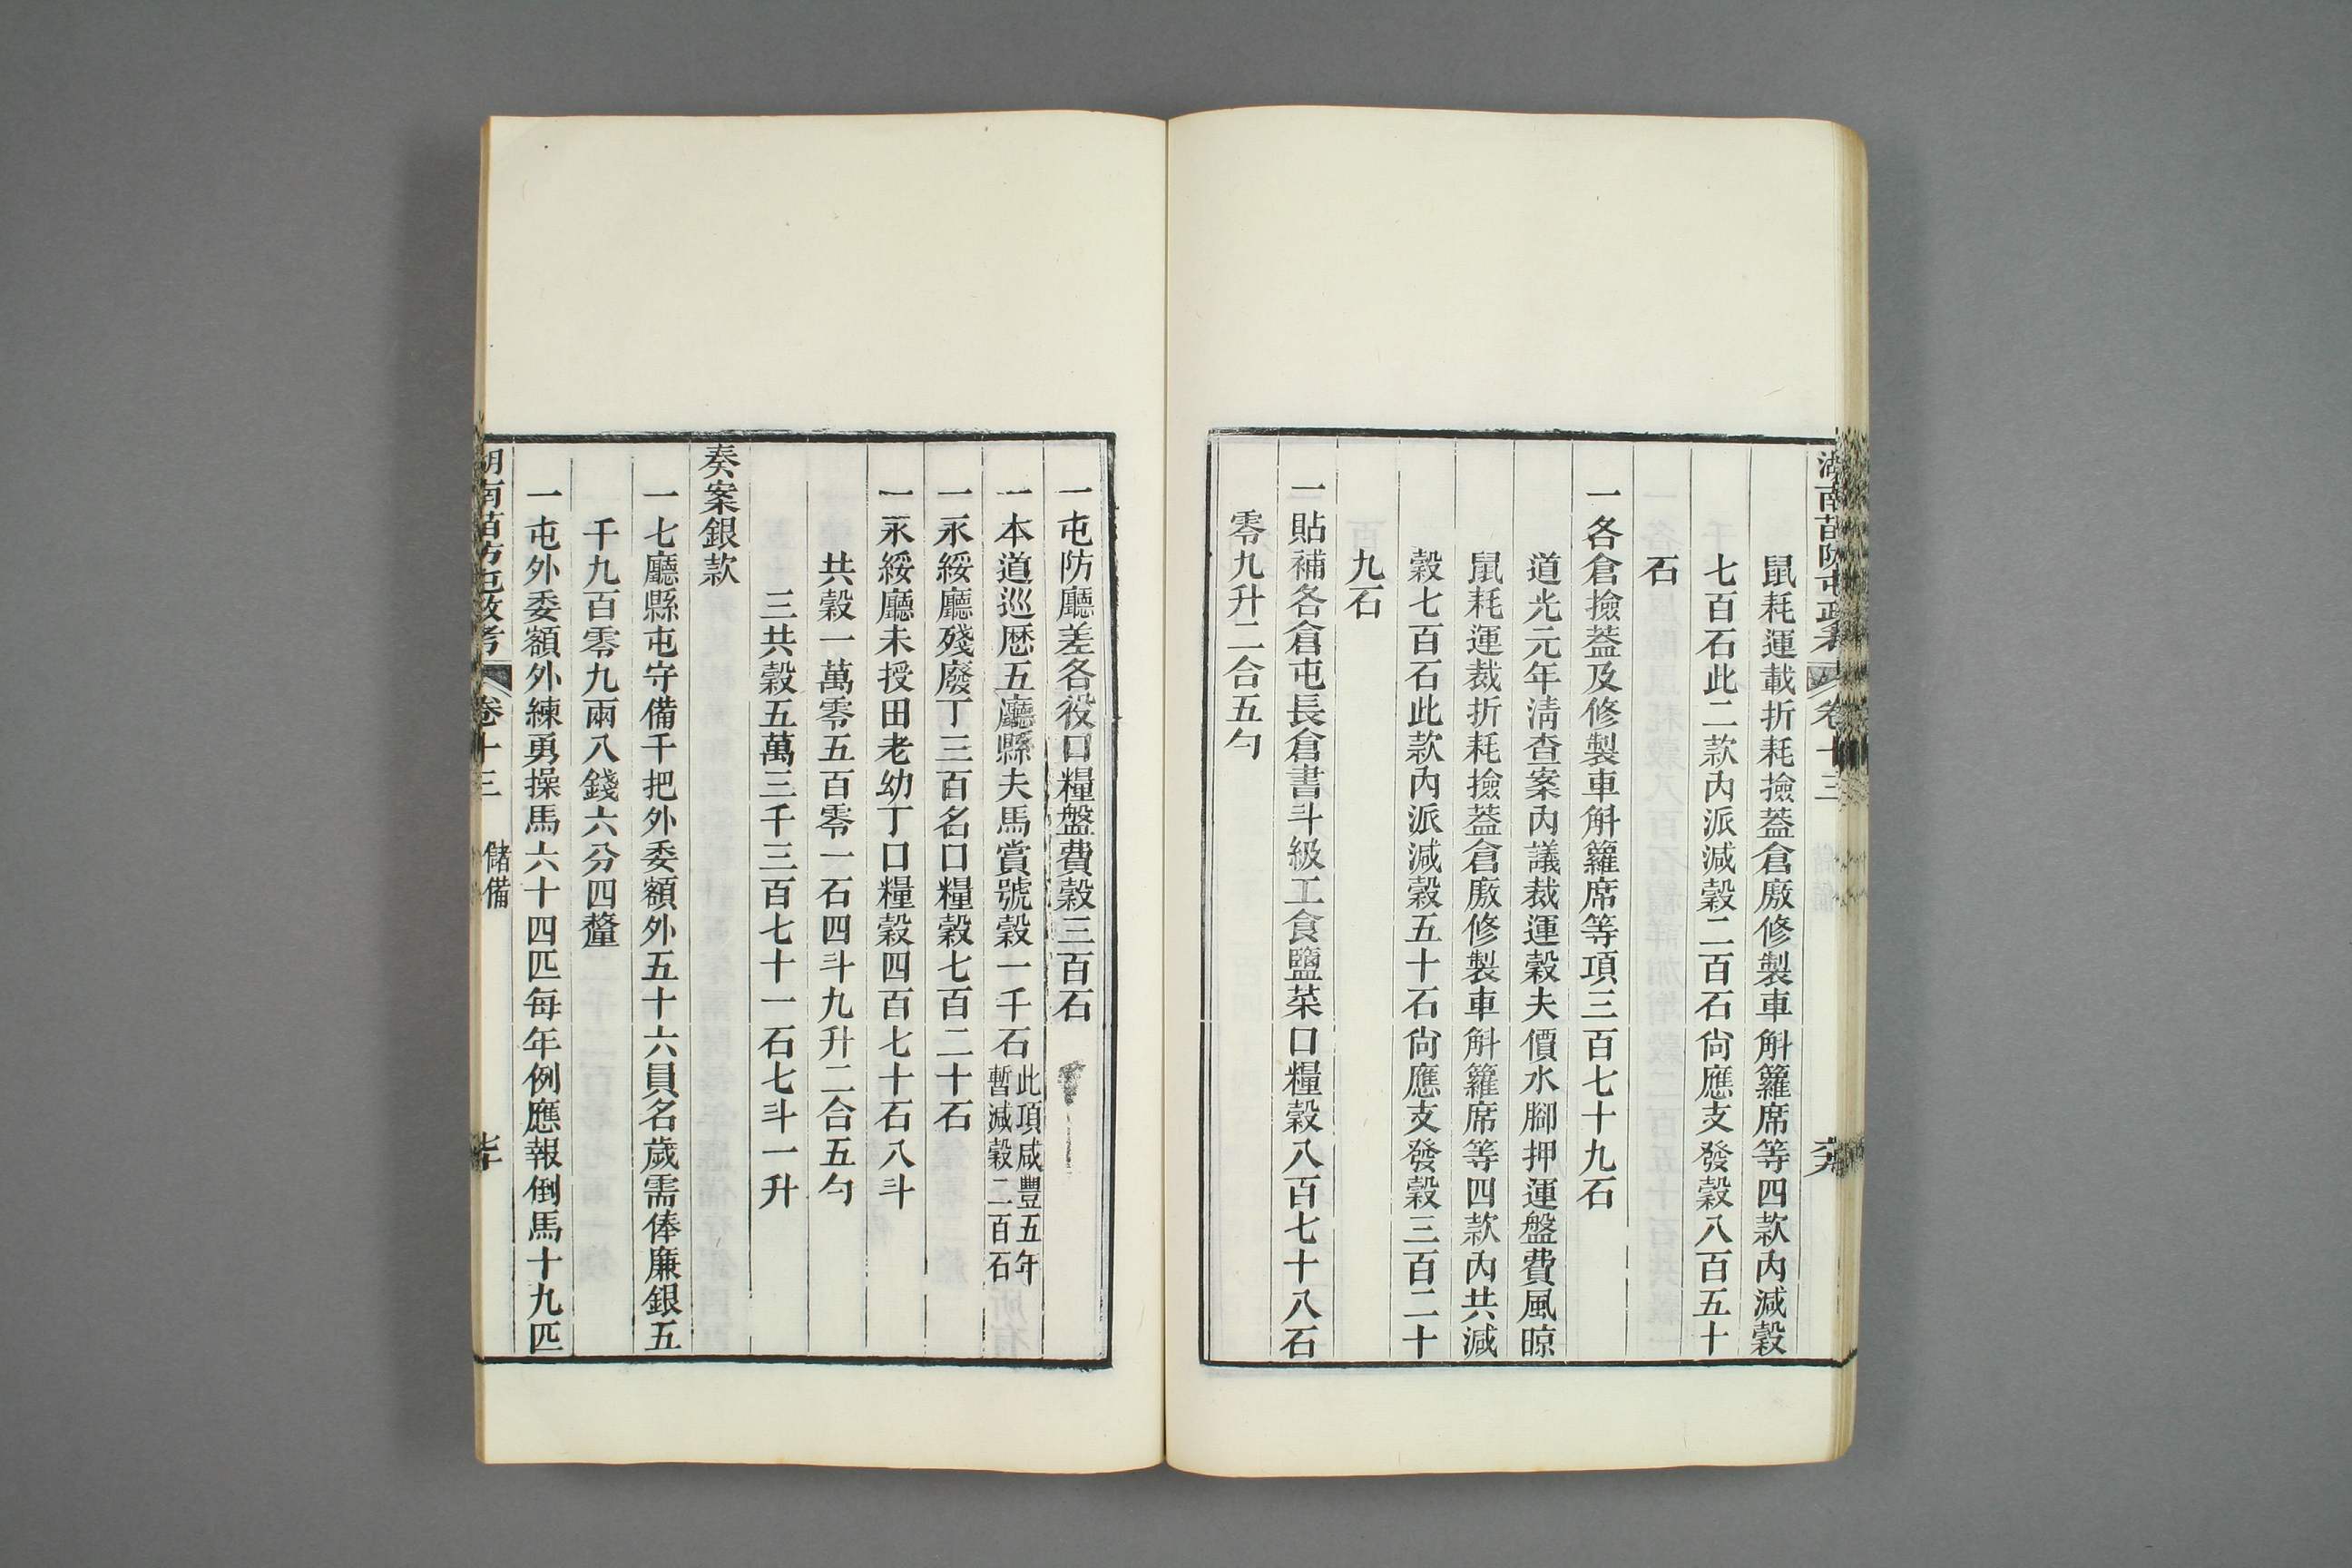 湖南苗防屯政考 卷十三 儲備
鼠耗運載折耗撿蓋倉廒修製車斛籮席等四款內減穀
七百石此二款內派減穀二百石尙應支發穀八百五十
石
一各倉撿蓋及修製車斛籮席等項三百七十九石
道光元年清查案內議裁運穀夫價水腳押運盤費風晾
鼠耗運裁折耗撿蓋倉廒修製車斛籮席等四款內共減
穀七百石此款內派減穀五十石尙應支發穀三百二十
九石
一貼補各倉屯長倉書斗級工食鹽菜口糧穀八百七十八石
零九升二合五勺
一屯防廳差各役口糧盤費穀三百石
一本道巡歷五廳縣夫馬賞號穀一千石此項咸豐五年
暫減穀二百石
一永綏廳殘廢丁三百名口糧穀七百二十石
一永綏廳未授田老幼丁口糧穀四百七十石八斗
共穀一萬零五百零一石四斗九升二合五勺
三共穀五萬三千三百七十一石七斗一升
奏案銀款
一七廳縣屯守備千把外委額外五十六員名歲需俸廉銀五
千九百零九兩八錢六分四釐
一屯外委額外練勇操馬六十四匹每年例應報倒馬十九匹
湖南苗防屯政考 卷十三 儲備